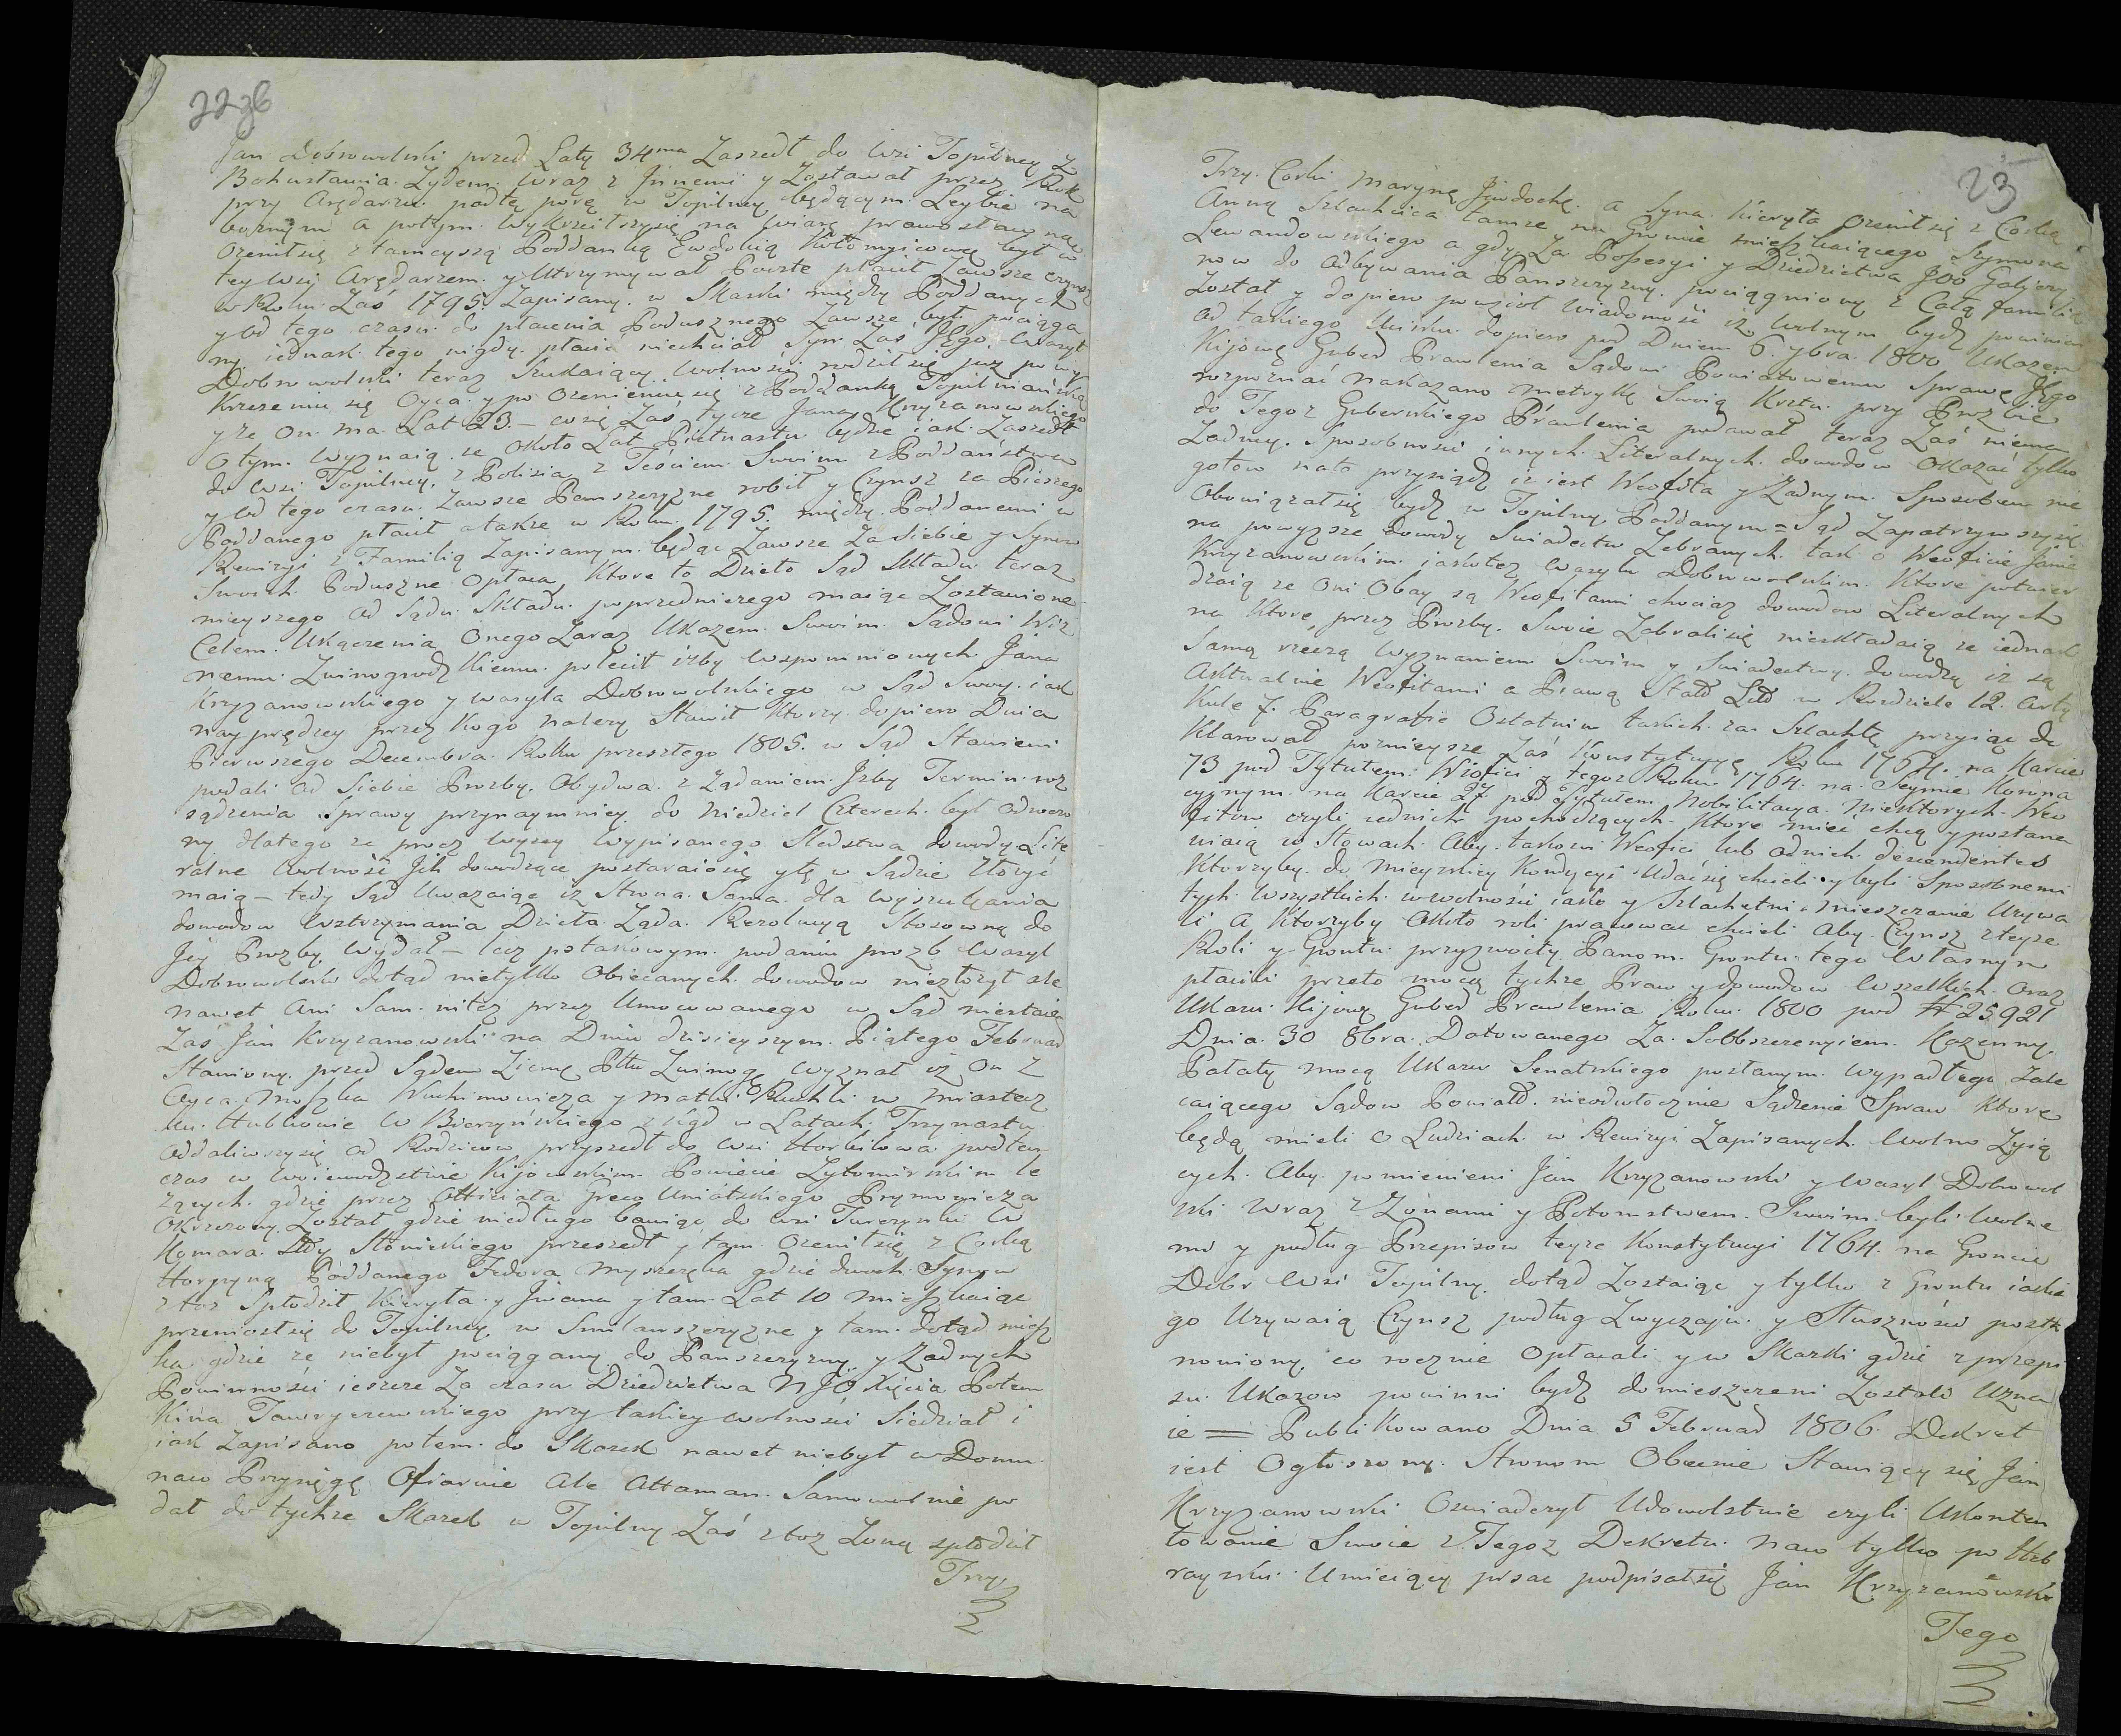 22зб
Jan Dobrowolski przed Laty 34ma Zaszedł do Wsi Topilney z
Bohusławia Zydem wraz z Jnnemi y Zostawał przez Rok
przy Arędarzu podtę porę w Topilney będącym Leybie na
boznym a potym Wykrzcił szysię na Wiarę prawosławną
Ozenił się z tameyszą Poddanką Ewdokią Kołomyicową był w
tey Wsi Arędarzem y Utrzymywał Pocztę płacił Zawsze czynsz
w Roku Zaś 1795. Zapisany w Skaski między Poddanych
y od tego czasu do płacenia Podusznego Zawsze był pociąga
ny iednak tego nigdy płacić niechciał Syn Zaś Jego Wasyl
Dobrowolski teraz Szukaiący Wolności rodził się juz po wy
Krzczeniu się Oyca y po Ozenieniu się z Poddanką Topilniańską
y ze On ma Lat 23. – co się Zaś tycze Jana Krzyzanowskiego
O tym wyznaią ze około Lat Pietnastu będzie iak Zaszedł
do Wsi Topilney z Polisia z Teściem Swoim z Poddaństwa
y od tego czasu Zawsze Panszczyzne robił y Czynsz za Pieszego
Poddanego płacił atakze w Roku 1795. między Poddanemi w
Rewizyi z Familią Zapisanym będąc Zawsze Za siebie y Synow
Swoich Poduszne Opłaca, Ktore to Dzieło Sąd Składu teraz
nieyszego Od Sądu Składu poprzedniczego maiąc Zostawione
Celem Ukączenia Onego Zaraz Ukazem Swoim Sądowi Niz
nemu Zwinogrodzkiemu polecił izby wspomnionych Jana
Krzyzanowskiego y Wasyla Dobrowolskiego w Sąd Swoy iak
nayprędzey przez Kogo nalezy Stawił Ktorzy dopiero Dnia
Pierwszego Decembra Roku przeszłego 1805. w Sąd Stawieni
podali Od Siebie Prozby Obydwa z Ządaniem Jzby Termin roz
sądzenia Sprawy przynaymniey do Niedziel Czterech był odwczo
ny dlatego ze procz wyzey wypisanego Sledstwa dowody Lite
ralne Wolność Jch dowodzące postaraiąsię y tę w Sądzie Złozyć
maią – tedy Sąd Uwazaiąc iz Strona Sama dla wyszukania
dowodow Wstrzymania Dzieła Ząda Rezolucyą Stosowną do
Jey Prozby wydał – lecz potakowym podaniu prozb Wasyl
Dobrowolski dotąd nietylko Obiecanych dowodow niezłozył ale
nawet Ani Sam nitez przez Umocowanego w Sąd niestaie
Zaś Jan Krzyzanowski na Dniu dzisieyszym Piątego Februar
Stawiony przed Sądem Ziems Pttu Zwinog wyznał iz On z
Oyca Moszka Wuchimowicza y matki Ruchli w Miastecz
ku Hublinie W Bierzyńskiego z kąd w Latach Trzynastu
oddaliwszysię od Rodzicow przyszedł do Wsi Horbilowa podten
czas w Woiewodztwie Kijowskim Powiecie Zytomirskim le
zących gdzie przez Officiała Grew Uniatskiego Prymowicza
Okrzczony Zostal gdzie niedługo bawiąc do Wsi Turczynki W
Komara Stty Słonickiego przeszedł y tam Ozenił się z Corką
Horpyną Poddanego Fedora Myszczęka gdzie dwoch Synow
z toz Spłodził Kieryła y Jwana y tam Lat 10 mieszkaiąc
przeniosł się do Topilney w Smilanszczyzne y tam dotąd miesz
ka gdzie ze niebył pociągany do Panszczyzny y Zadnych
Powinności ieszcze Za czasu Dziedzictwa NJO Xięcia Potem
kina Tawryczewskiego przy takiey wolności Siedział i
iak Zapisano potem do Skazek nawet niebył w Domu
naco Przysięgę Ofiaruie Ale Attaman Samowolnie po
dał do tychze Skazek w Topilny Zaś z toz Zoną spłodził
Trzy
23
Trzy Corki Marynę Jiwdochę a Syna Kieryła Ozenił się z Corką
Anną Szlachcica tamze na Gruncie mieszkaiącego Szymona
Lewandowskiego a gdy Za Possesyi y Dziedzictwa JOO Golicy
now do Odbywania Panszczyzny pociągniony z Całą familią
Zostal y dopiero powziął Wiadomość iz Wolnym bydz powinien
Od takiego Ucisku dopiero pod Dniem 6. 7bra 1800 Ukazem
Kijows Guber Prawlenia Sądowi Powiatowemu Sprawę Jego
rozpoznać nakazano metrykę Swoią Krztu przy Prozbie
do Tegoz Guberskiego Prawlenia podawał teraz Zaś niema
Zadney Sposobności innych Literalnych dowodow Okazać tylko
gotow nato przysiądz iz iest Neofita y Zadnym Sposobem nie
Obowiązał się bydz w Topilny Poddanym = Sąd Zapatrzywszysię
na powyzsze dowody Swiadectw Zebranych tak o Neoficie Janie
Krzyzanowskim iakotez Wasylu Dobrowolskim Ktore potwier
dzaią ze Oni Obay są Neofitami chociaz dowodow Literalnych
na Ktore przez Prozby Swoie Zebrali się nieskładaią ze iednak
Samą rzeczą wyznaniem Swoim y Swiadectwy dowodzą iz są
Aktualnie Neofitami a Prawa Statt Litt w Rozdziele 12. Arty
kule 7. Paragrafie Ostatnim takich za Szlachtę przyiąc de
Klarował poznieysze Zaś Konstytucye Roku 1764. na Karcie
73 pod Tytułem Neofici y tegoz Roku 1764. na Seymie Korona
cyynym na Karcie 27. pod Tytułem Nobilitacya Niektorych Neo
fitow czyli zednich pochodzących Ktore mieć chcą y postana
wiaią w Słowach Aby takowi Neofici lub Odnich descendentes
Ktorzyby do mieyskiey Kondycyi Udać się chcieli y byli Sposobnemi
tych Wszystkich Wwolności iako y Szlachetni Mieszczanie Uzywa
li A Ktorzyby Około roli pracowac chcieli Aby Czynsz z teyze
Roli y Gruntu przyzwoity Panom Gruntu tego Własnym
płacili przeto mocą tychze Praw y dowodow Wszelkich oraz
Ukazu Kijows Guber Prawlenia Roku 1800 pod # 25921
Dnia 30 8bra Datowanego Za Sobbszczenyiem Kazenny
Pałaty mocą Ukazu Senatskiego postanym wypadłego Zale
caiącego Sądow Powiatt nieodwłocznie Sądzenie Spraw Ktore
będą mieli o Ludziach w Rewizyi Zapisanych Wolno Zyią
cych Aby pomienieni Jan Krzyzanowski y Wasyl Dobrowol
ski Wraz z Zonami y Potomstwem Swoim byli Wolne
mi y podług Przepisow teyze Konstytucyi 1764. na Gruncie
Dobr Wsi Topilny dotąd Zostaiąc y tylko z Gruntu iakie
go Uzywaią Czynsz podług Zwyczaju y Słuszności posta
nowiony co rocznie Opłacali y w Skazki gdzie z przepi
su Ukazow powinni bydz domieszczeni Zostali Uzna
ie = Publikowano Dnia 5 Februar 1806. Dekret
iest Ogłoszony Stronom Obecnie Stawiący się Jan
Krzyzanowski Oswiadczył Udowolstwie czyli Ukonten
towanie Swoie z Tegoz Dekretu naco tylko po Heb
rayski Umieiący pisac podpisał się Jan Krzyzanowski
Tego